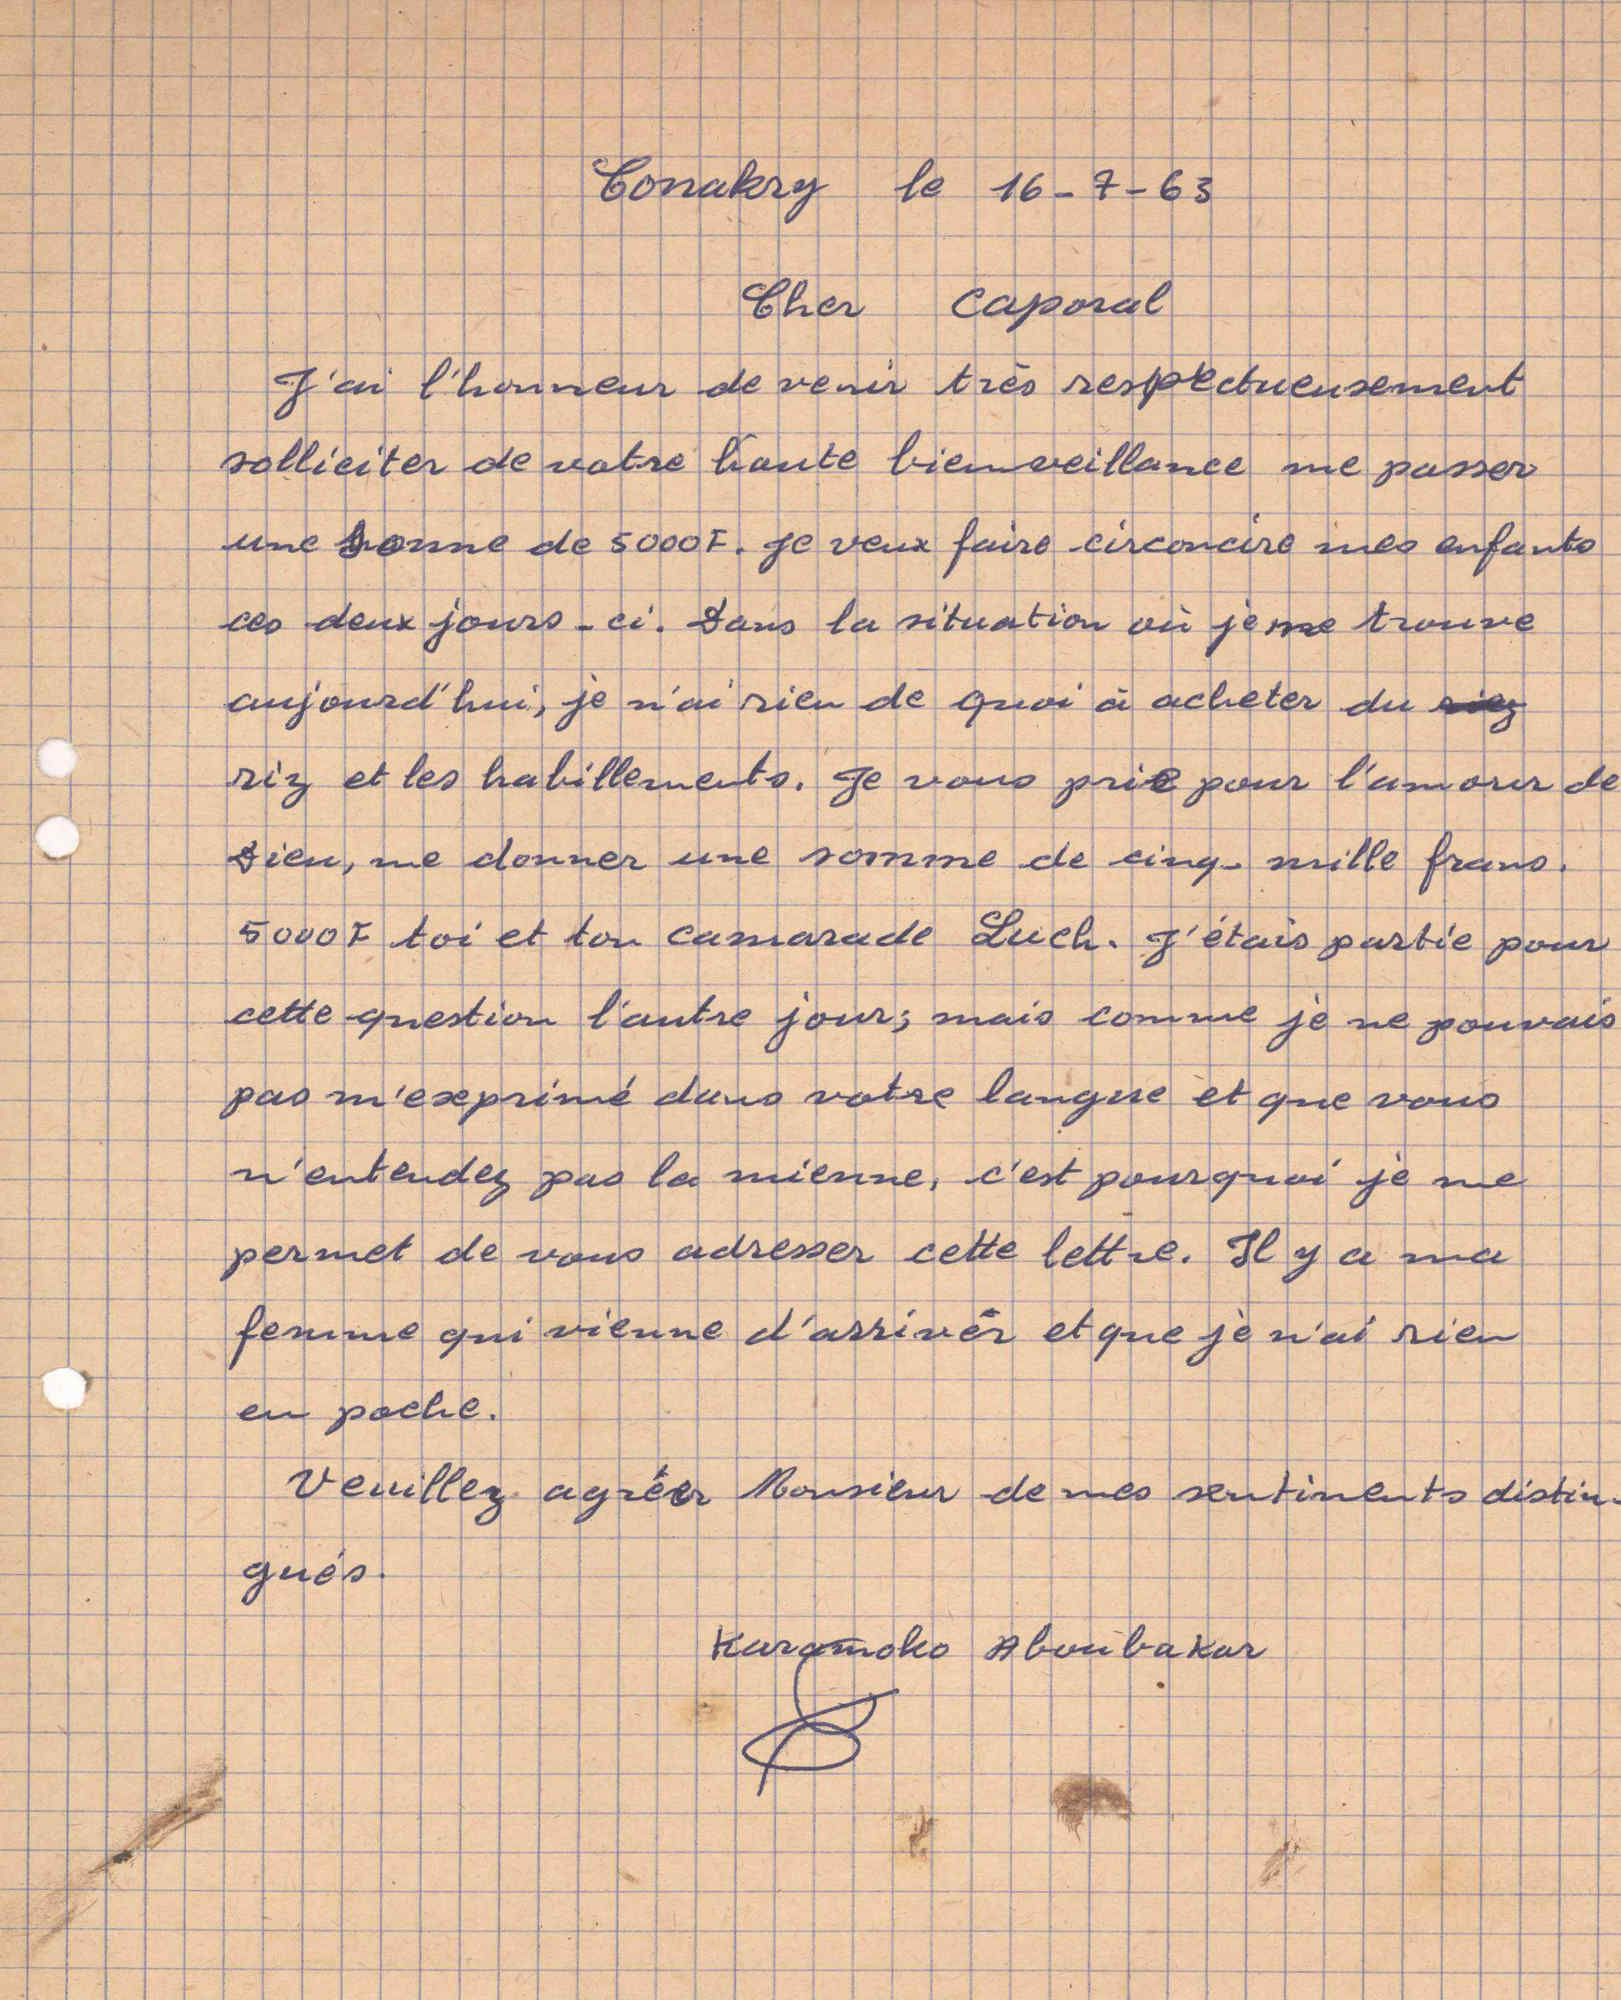 Conakry le 16-7-63
Cher Caporal
J'ai l'honneur de venir très respectueusement
solliciter de votre haute bienveillance me passer
une somme de 5000F. Je veux faire circoncire mes enfants
ces deux jours-ci. Dans la situation où je me trouve
aujourd'hui, je n'ai rien de quoi à acheter du riez
riz et les habillements. Je vous prie pour l'amour de
Dieu, me donner une somme de cinq-mille frans.
5000F toi et ton camarade Luch. J'étais partie pour
cette question l'autre jour; mais comme je ne pouvais
pas m'exprimé dans votre langue et que vous
n'entendez pas la mienne, c'est pourquoi je me
permet de vous adresser cette lettre. Il y a ma
femme qui vienne d'arrivér et que je n'ai rien
en poche.
Veuillez agréer Monsieur de mes sentiments distin-
gués.
Karamoko Aboubakar